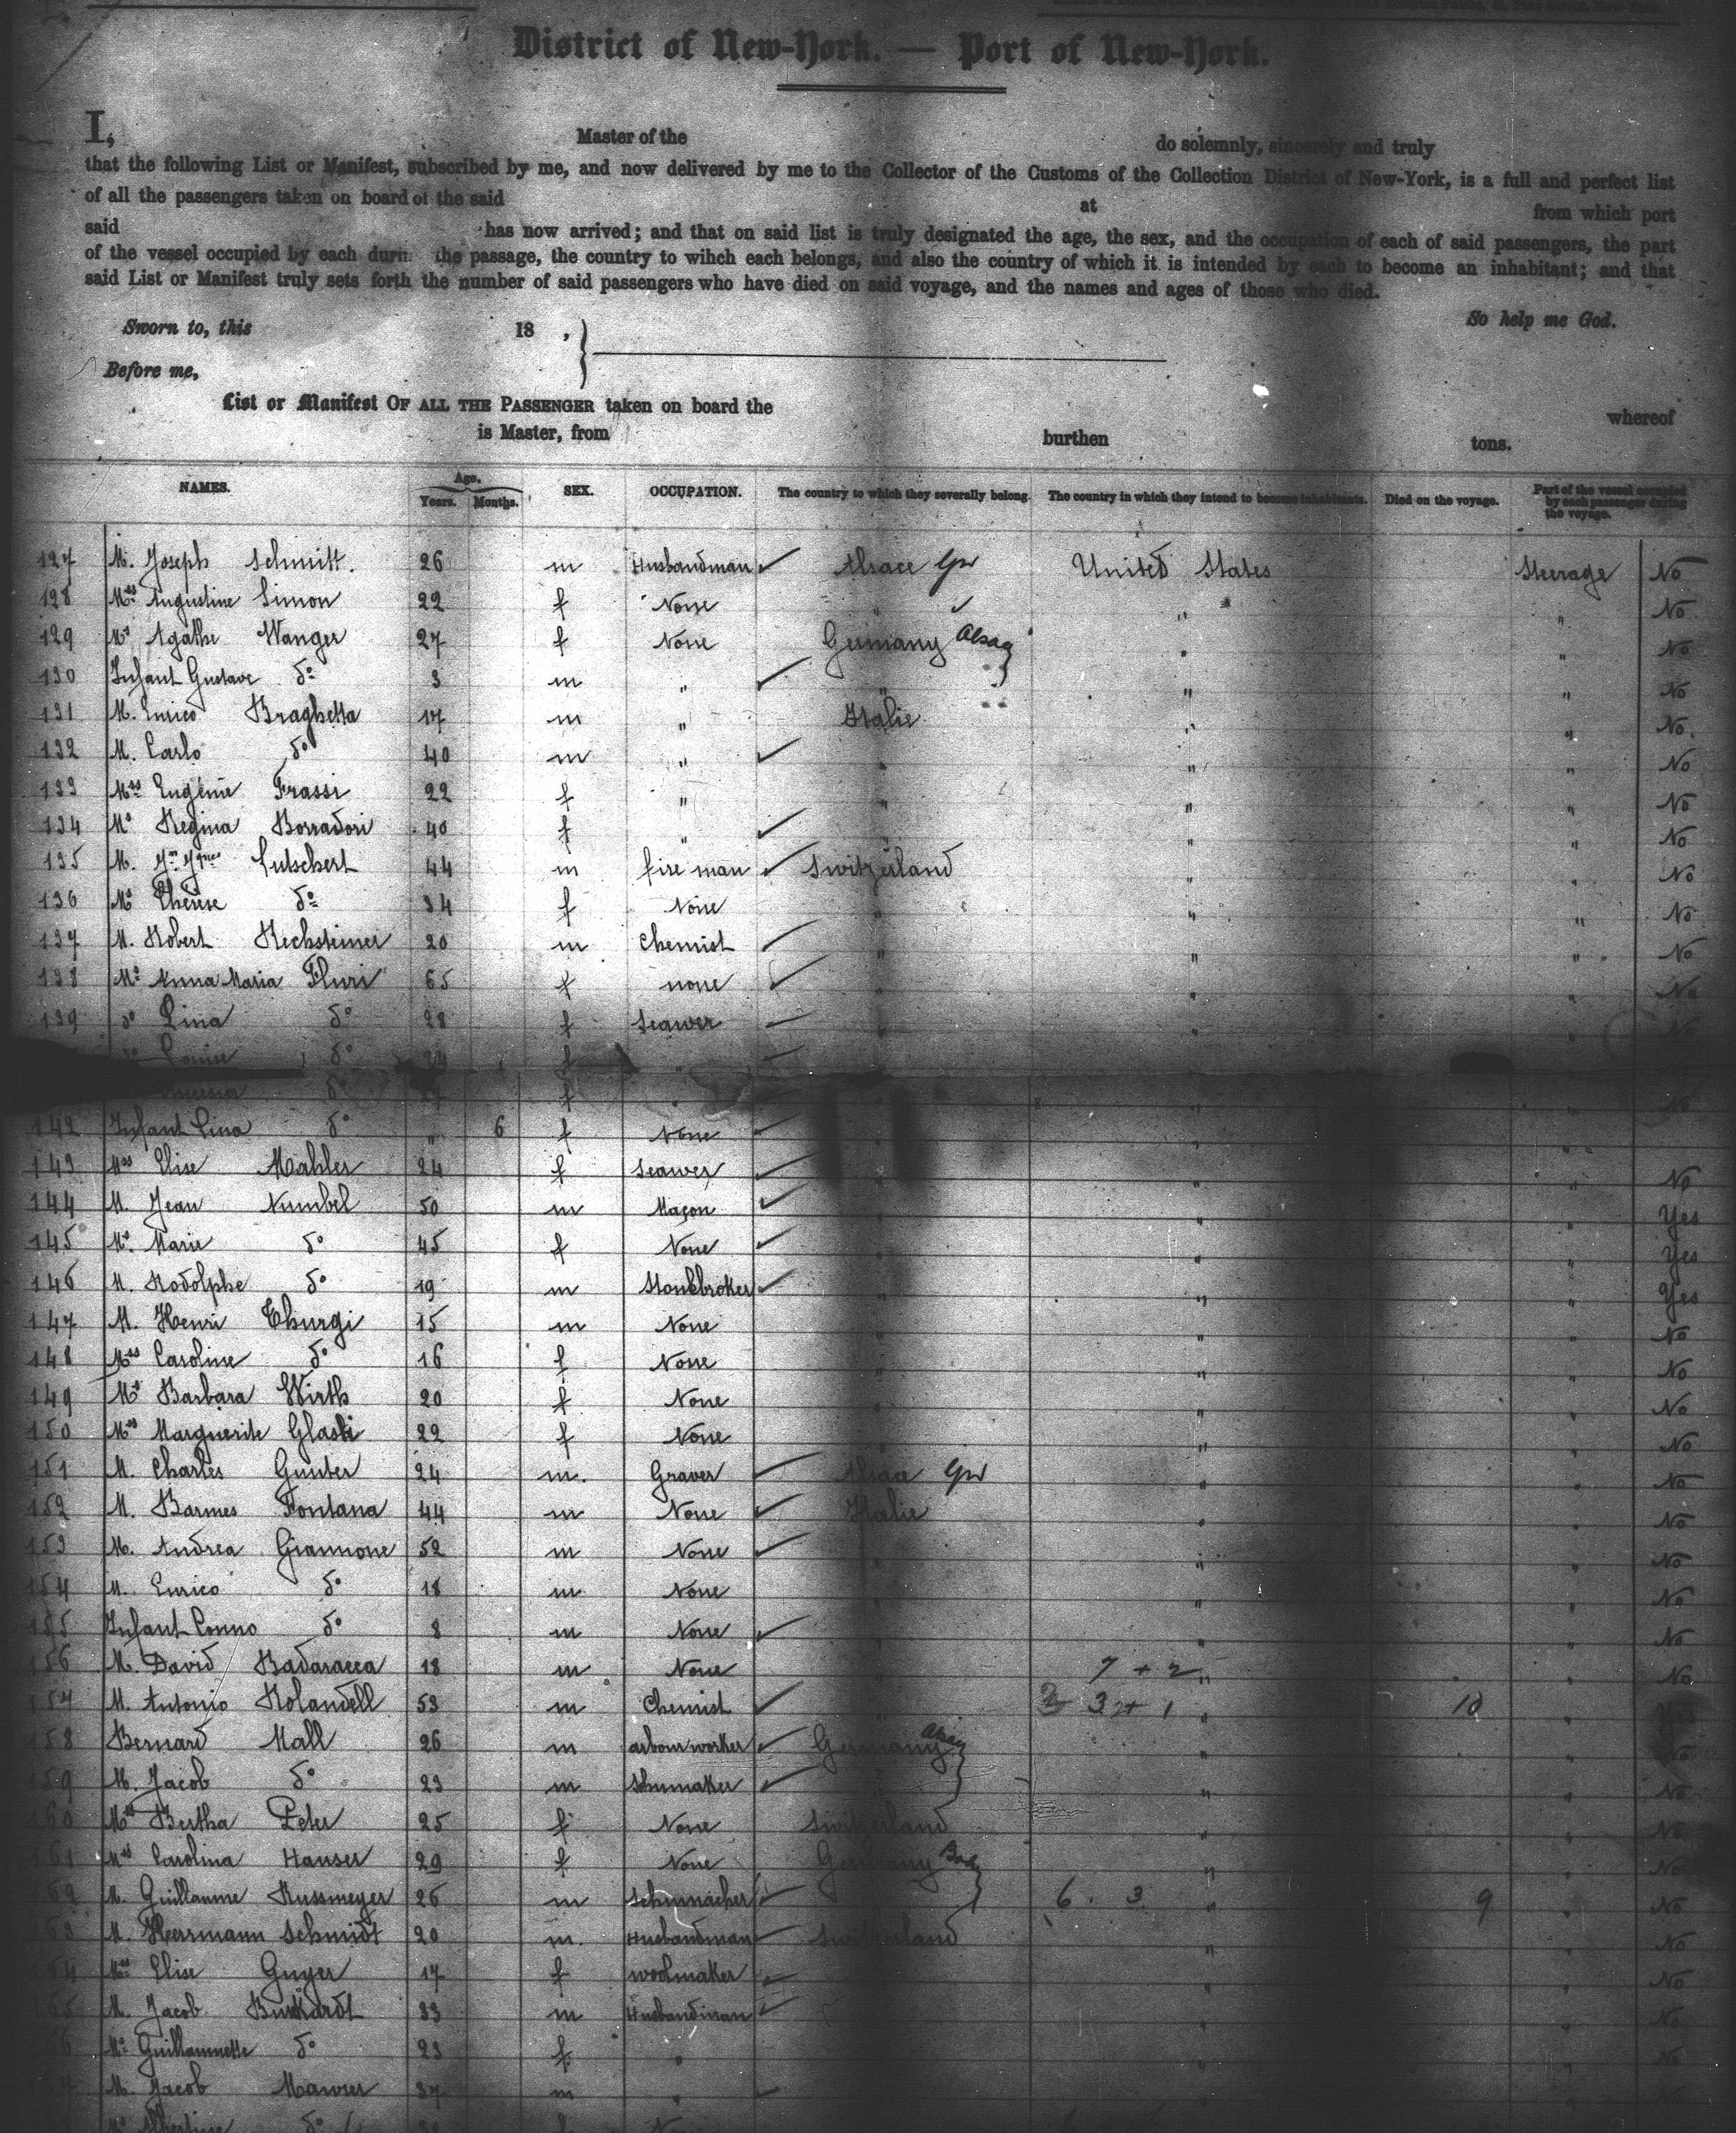 District of New-York. — Port of New-York.
I, Master of the do solemnly, sincerely and truly
that the following List or Manifest, subscribed by me, and now delivered by me to the Collector of the Customs of the Collection District of New-York, is a full and perfect list
of all the passengers taken on board of the said at from which port
said has now arrived; and that on said list is truly designated the age, the sex, and the occupation of each of said passengers, the part
of the vessel occupied by each durin the passage, the country to wihch each belongs, and also the country of which it is intended by each to become an inhabitant; and that
said List or Manifest truly sets forth the number of said passengers who have died on said voyage, and the names and ages of those who died.
Sworn to, this 18 , So help me God.
Before me,
List or Manifest OF ALL THE PASSENGER taken on board the whereof
is Master, from burthen tons.
NAMES. Age. Years. Months. SEX. OCCUPATION. The country to which they severally belong. The country in which they intend to become inhabitants. Died on the voyage. Part of the vessel occupied by each passenger during the voyage.
127 M. Joseph Schmitt. 26 m Husbandman Alsace United States Steerage No
128 Mss Augustine Simon 22 f None " " " No
129 Ms Agathe Wanger 27 f None Germany Alsace " " No
130 Infant Gustave do 3 m " " " " No
131 M. Enrico Braghetta 17 m " Italie " " No.
132 M. Carlo do 40 m " " " " No
133 Mss Eugénie Frassi 22 f " " " " No
134 Ms Regina Borradori 40 f " " " No
135 M. Lutschert 44 m fire man Switzerland " " No
136 Ms Therese do 34 f None " " " No
137 M. Robert Rechsteiner 20 m Chemist " " " No
138 Ms Anna Maria Fluri 65 f none " " " No
139 do Lina do 28 f Seawer " " " No
do Louise do 24 f "
do f " " " No
142 Infant Lina do " 6 f None " "
143 Mss Elise Mahler 24 f Seawer " " " No
144 M. Jean Numbel 50 m Maçon " " " Yes
145 Ms. Marie do 45 f None " " Yes
146 M. Rodolphe do 19 m Stonebroker " " Yes
147 M. Henri Thurgi 15 m None " " No
148 Mss Caroline do 16 f None " " No
149 Ms Barbara Wirth 20 f None " " No
150 Mss Marguerite Glasti 22 f None " " No
151 M. Charles Gunter 24 m. Graver Alsace " " No
152 M. Barmes Fontana 44 m None Italie " " No
153 M. Andrea Giannone 52 m None " " No
154 M. Enrico do 18 m None " " No
155 Infant Conno do 8 m None " " " No
156 M. David Badaracca 18 m None 7 + 2 " " No
157 M. Antonio Rolandell 53 m Chemist " 3 2+ 1 " 10 " Yes
158 Bernard Mall 26 m arbour worker Germany " " No
159 M. Jacob do 23 m Schumaker " " " No
160 Mss Bertha Peter 25 f None Switzerland " " No
161 Mss Carolina Hauser 29 f None Germany " " No
162 M. Guillaume Russmeyer 26 m Schumacher 6. 3 " 9 " No
163 M. Herrmann Schmidt 20 m. Husbandman Switzerland " " No
164 Mss Elise Guyer 17 f woolmaker " " No
165 M. Jacob Burkardt 33 m Husbandman " " No
66 Ms Guillaumette do 23 f " " " No
M. Jacob Maurer 37 m " " "
Ms Albertine do f None